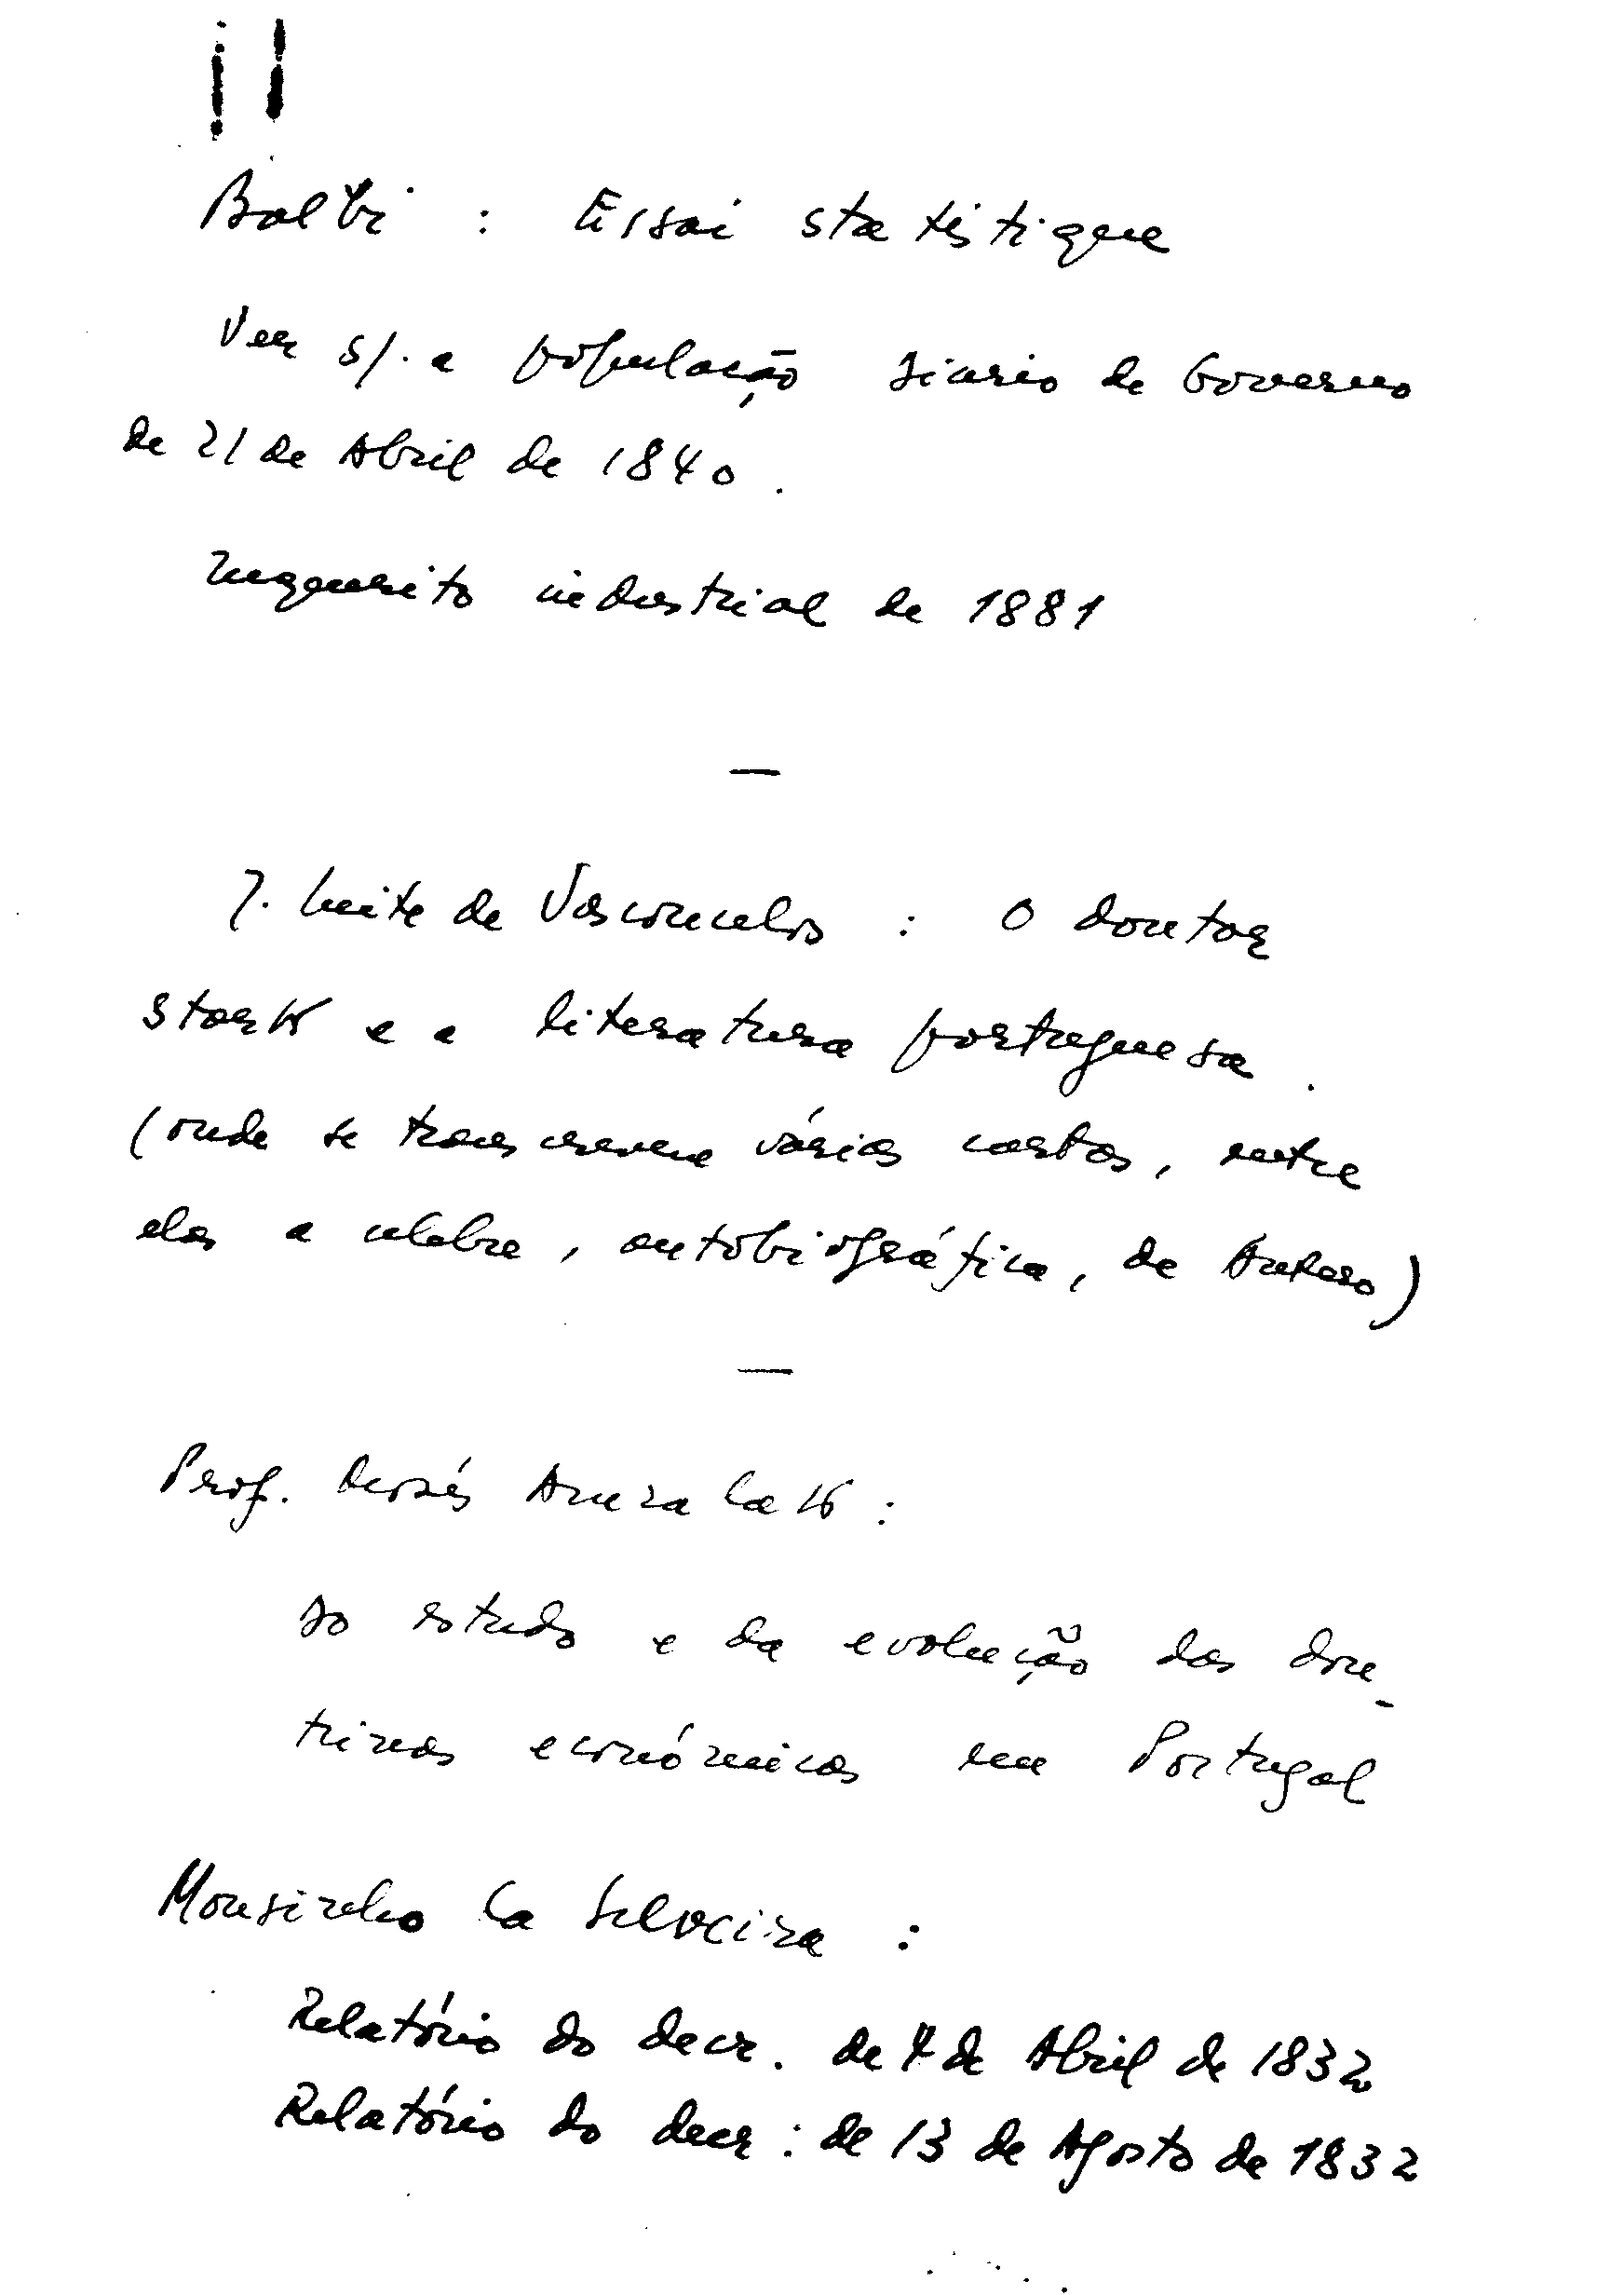 Balbi : Essai statistique
Ver s/. a população Diario de Governo
de 21 de Abril de 1840.
Inquerito industrial de 1881
—
J. Leite de Vasconcelos : O doutor
Stork e a literatura portuguesa.
(onde se transcreve várias cartas, entre
elas a celebre, autobiográfica, de Antero)
—
Prof. Mosés Amzalak :
Do estudo e da evolução das dou-
trinas económicas em Portugal
Mousinho da Silveira :
Relatório do decr. de 4 de Abril de 1832
Relatório do decr : de 13 de Agosto de 1832